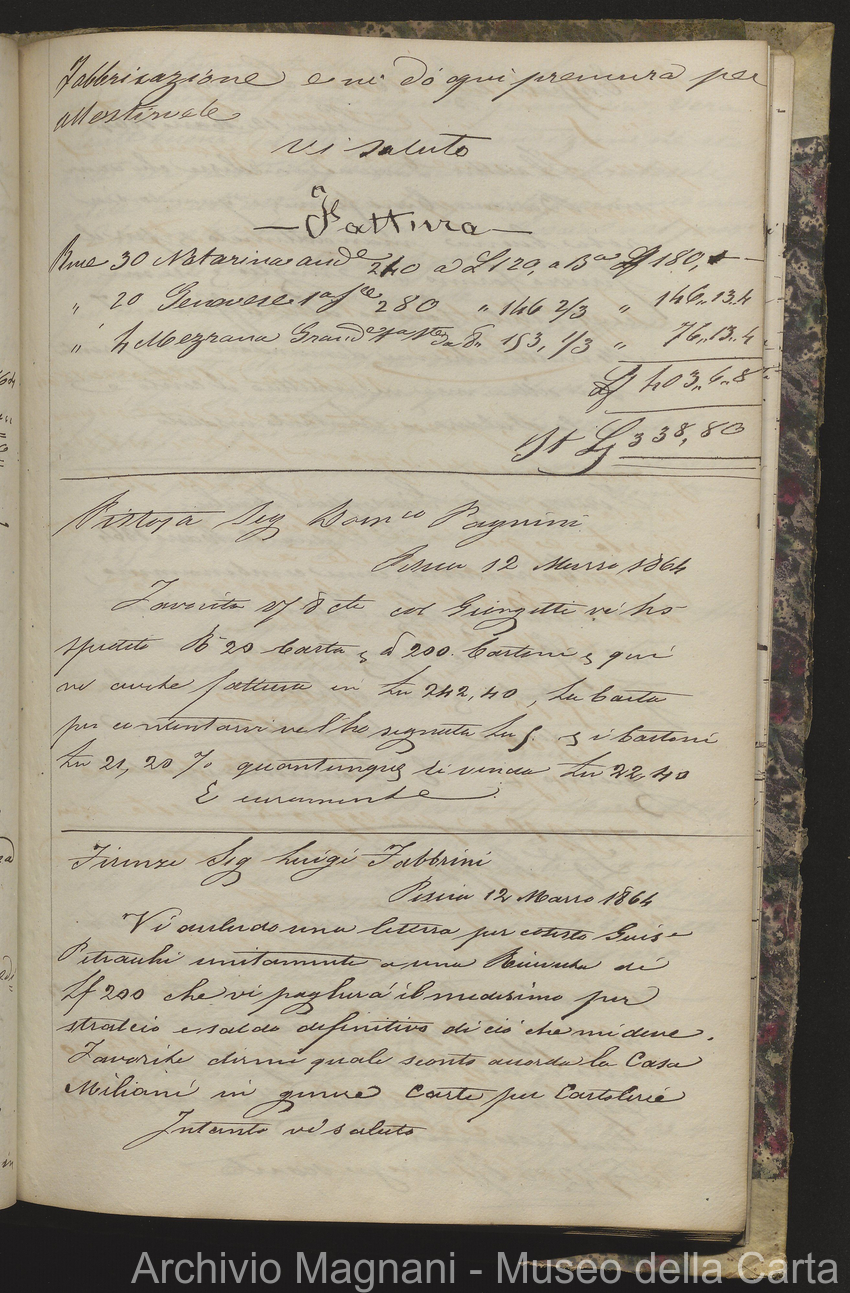 Fabbricazione e vi dò qui premura per
attestirvele
Vi saluto
— Fattura —
Rme 30 Notarina and.e 240 a L 120, a Bta Lf 180, " —
" 20 Genovese 1a f.ce 280 " 146 2/3 " 146 " 13 " 4
" 4 Mezzana Grand.e 153, 1/3 " 76 " 13 " 4
Lf 403 " 6 " 8
It Lf 338,80
Pistoja Sig Dom.co Pagnini
Pescia 12 Marzo 1864
Favorita 7 8 cte col Giorgetti vi ho
spedito B 20 Carta, e d 200. Cartoni e qui
vi anche fattura in Ln 242,40, la Carta
per contentarvi ve l'ho segnata Ln 5. e i Cartoni
Ln 21,20 % quantunque si venda Ln 22,40
E caramente
Firenze Sig Luigi Fabbrini
Pescia 12 Marzo 1864
Vi accludo una lettera per cotesto Guise
Petrachi unitamente a una Ricevuta di
Lf 200 che vi pagherà il medesimo per
stralcio e saldo definitivo di ciò che mi deve.
Favorite dirmi quale sconto accorda la Casa
Miliani in genere Carte per Cartolerie
Intanto vi saluto
Archivio Magnani - Museo della Carta